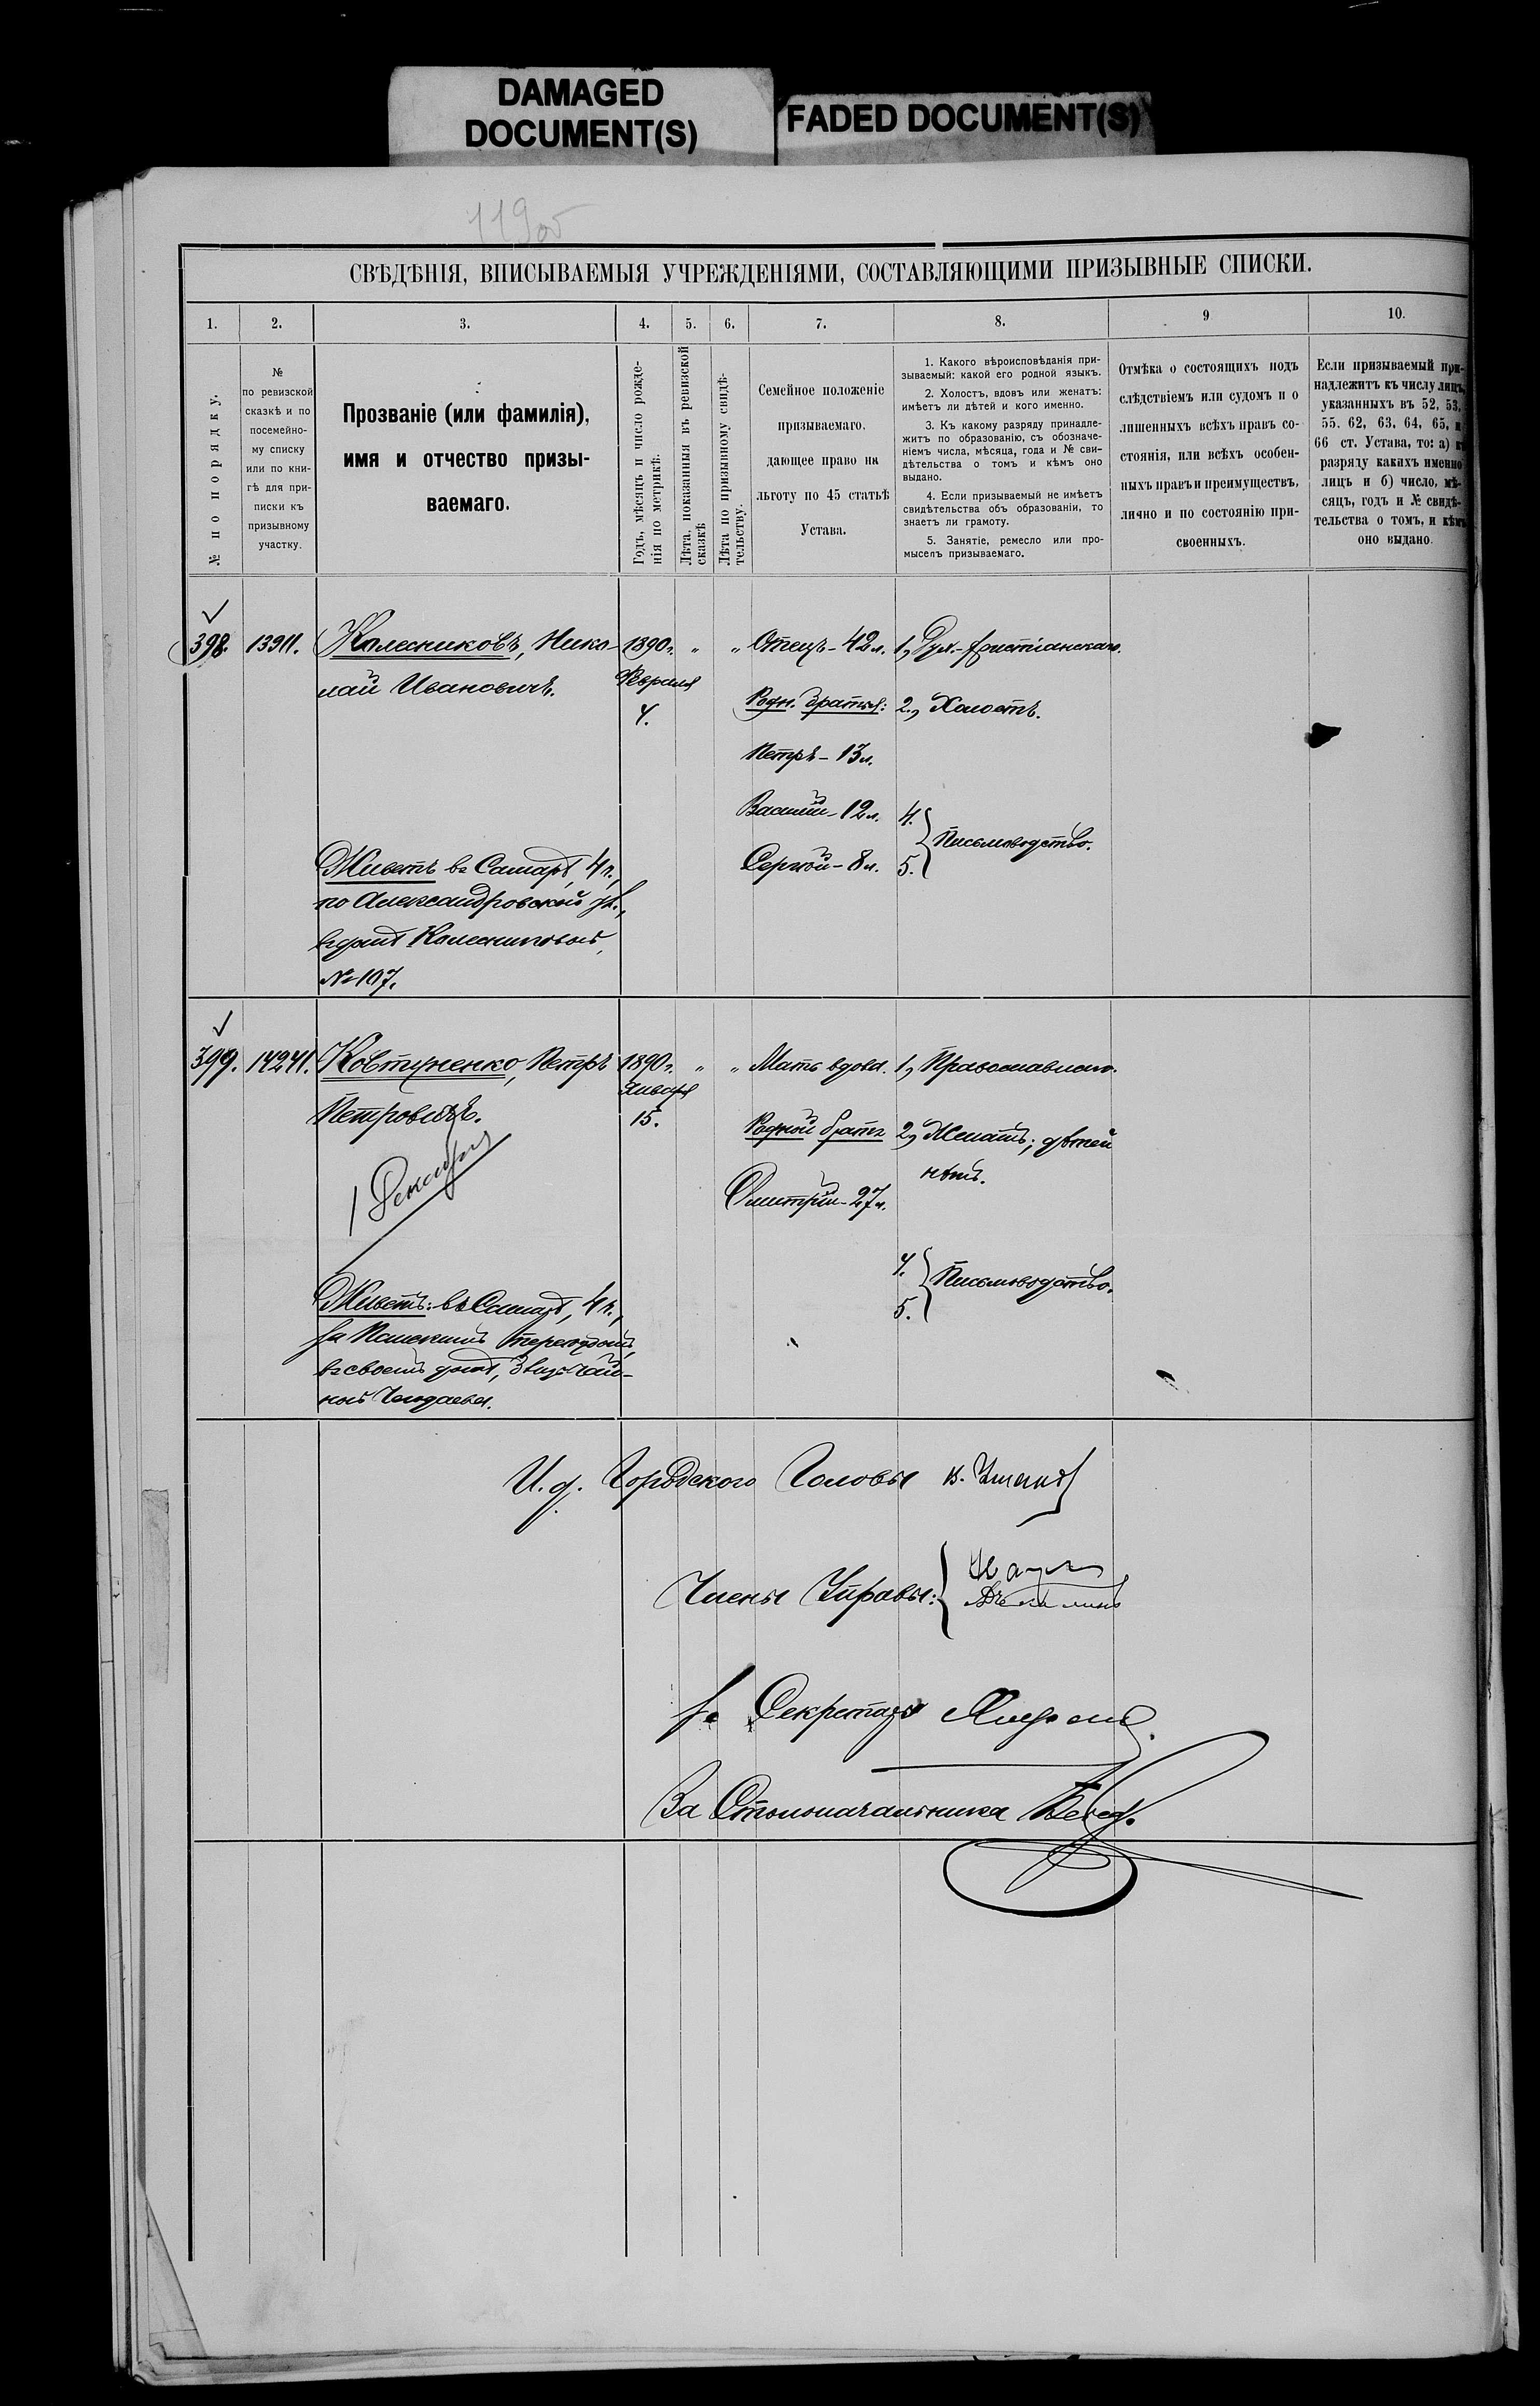 DAMAGED
DOCUMENT(S)
FADED DOCUMENT(S)
119об
СВѢДѢНІЯ, ВПИСЫВАЕМЫЯ УЧРЕЖДЕНІЯМИ, СОСТАВЛЯЮЩИМИ ПРИЗЫВНЫЕ СПИСКИ.
1.
2.
3.
4.
5.
6.
7.
8.
9
10.
№ по порядку.
№
по ревизской
сказкѣ и по
посемейно-
му списку
или по кни-
гѣ для при-
писки къ
призывному
участку.
Прозваніе (или фамилія),
имя и отчество призы-
ваемаго.
Годъ, мѣсяцъ и число рожде-
нія по метрикѣ.
Лѣта, показанныя въ ревизской
сказкѣ
Лѣта по призывному свидѣ-
тельству.
Семейное положеніе
призываемаго,
дающее право на
льготу по 45 статьѣ
Устава.
1. Какого вѣроисповѣданія при-
зываемый: какой его родной языкъ.
2. Холостъ, вдовъ или женатъ:
имѣетъ ли дѣтей и кого именно.
3. Къ какому разряду принадле-
житъ по образованію, съ обозначе-
ніемъ числа, мѣсяца, года и № сви-
дѣтельства о томъ и кѣмъ оно
выдано.
4. Если призываемый не имѣетъ
свидѣтельства объ образованіи, то
знаетъ ли грамоту.
5. Занятіе, ремесло или про-
мыселъ призываемаго.
Отмѣка о состоящихъ подъ
слѣдствіемъ или судомъ и о
лишенныхъ всѣхъ правъ со-
стоянія, или всѣхъ особен-
ныхъ правъ и преимуществъ,
лично и по состоянію при-
своенныхъ.
Если призываемый при-
надлежитъ къ числу лицъ,
указанныхъ въ 52, 53,
55, 62, 63, 64, 65, и
66 ст. Устава, то: а) къ
разряду какихъ именно
лицъ и б) число, мѣ-
сяцъ, годъ и № свидѣ-
тельства о томъ, и кѣмъ
оно выдано.
398.
13911.
Колесниковъ, Нико-
лай Ивановичъ.
Живетъ въ Самарѣ, 4 ч.,
по Александровской ул.,
въ домѣ Колесниковой,
№ 107.
1890 г.
Февраля
4.
"
"
Отецъ - 42 л.
Родн. братья:
Петръ - 13 л.
Василій - 12 л.
Сергѣй - 8 л.
1, Дух.-христіанскаго.
2., Холостъ.
4.
5.
Письмоводство.
399.
14241.
Ковтуненко, Петръ
Петровичъ.
1 Декабря
Живетъ: въ Самарѣ, 4 ч.,
въ своемъ домѣ,
1890 г.
Января
15.
"
"
Мать вдова.
Родной братъ
Дмитрій - 27 л.
1, Православнаго.
2, Женатъ; дѣтей
нѣтъ.
4.
5.
Письмоводство.
И. д. Городского Головы
Члены Управы:
За Секретаря
За Столоначальника